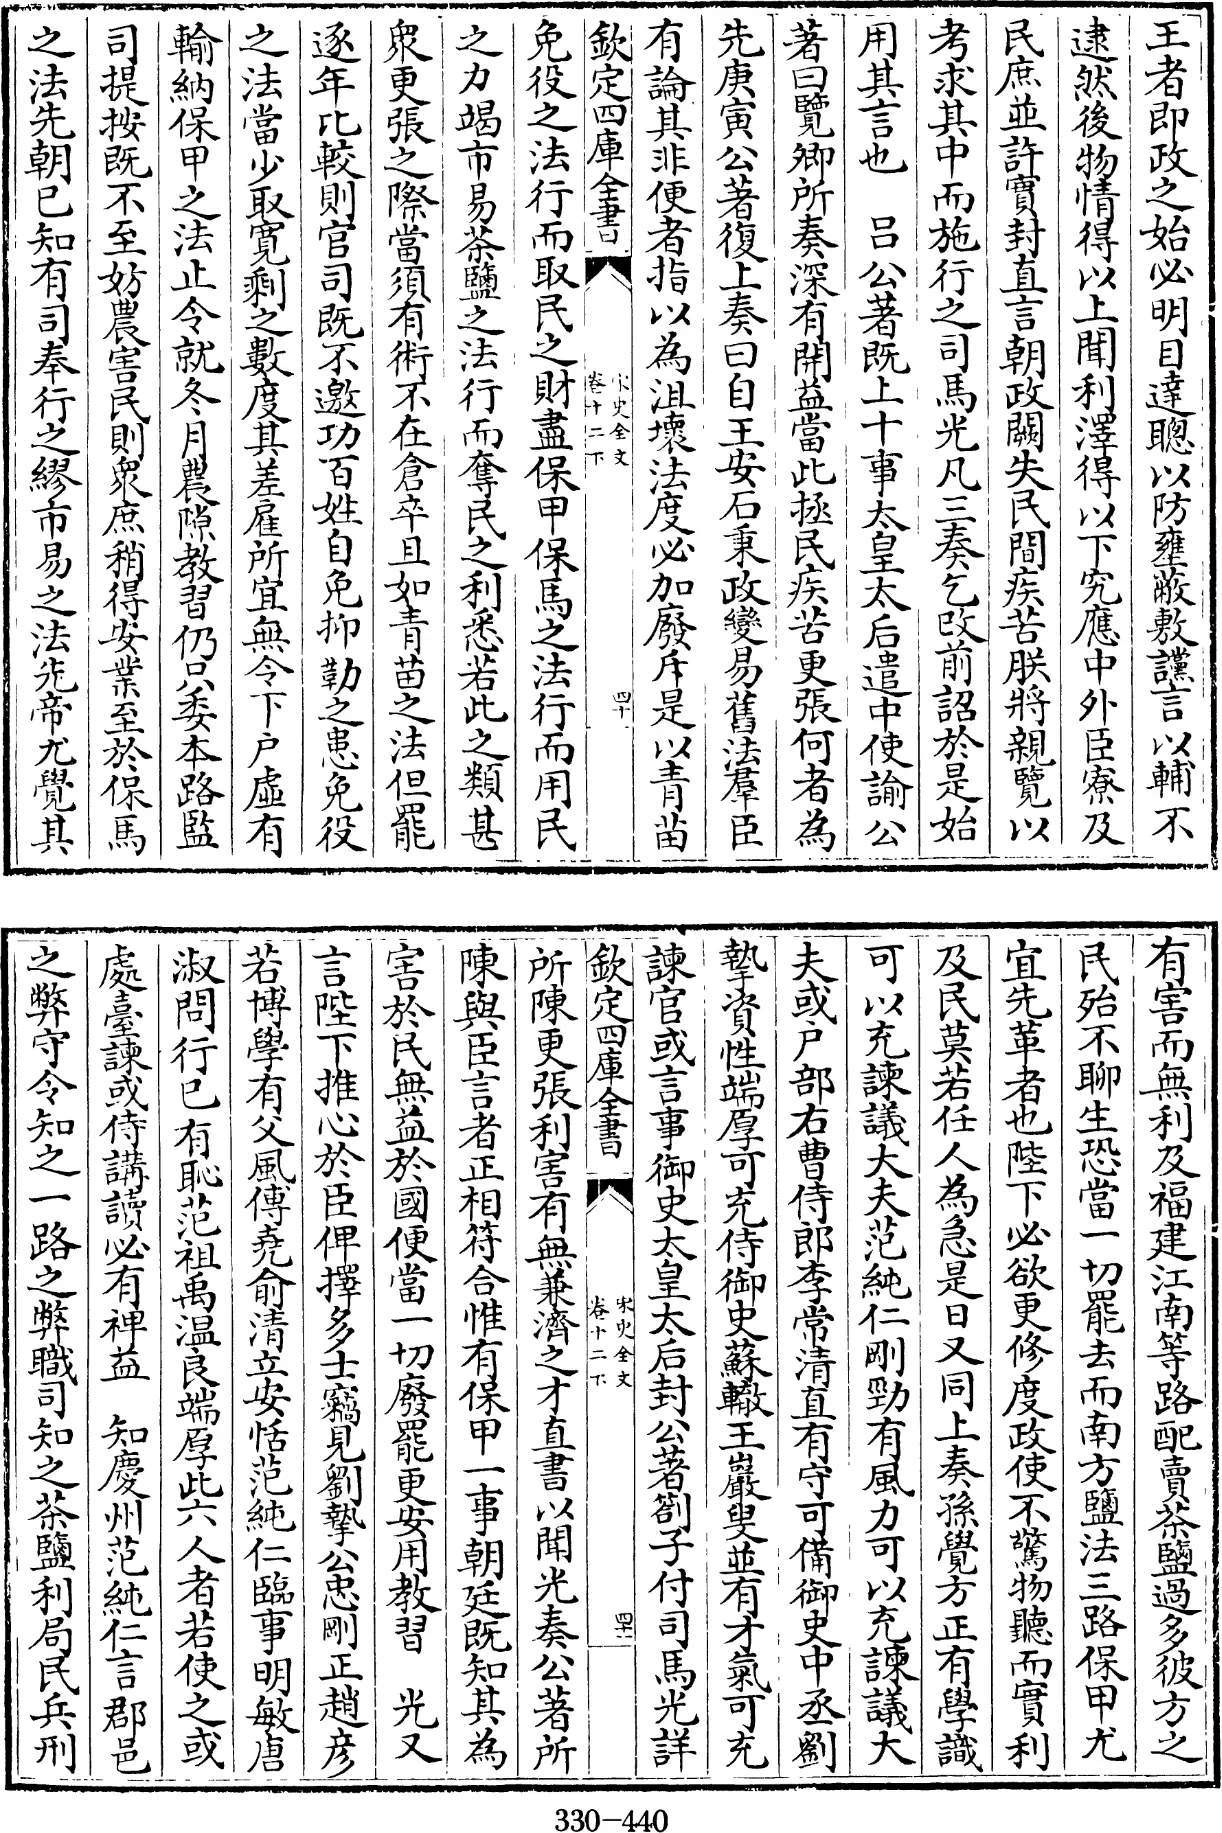 王者即政之始必明目達聰以防壅蔽敷讜言以輔不
逮然後物情得以上聞利澤得以下究應中外臣寮及
民庶並許實封直言朝政闕失民間疾苦朕將親覽以
考求其中而施行之司馬光凡三奏乞改前詔於是始
用其言也　吕公著既上十事太皇太后遣中使諭公
著曰覽卿所奏深有開益當此拯民疾苦更張何者為
先庚寅公著復上奏曰自王安石秉政變易舊法羣臣
有論其非便者指以為沮壞法度必加廢斥是以青苗
欽定四庫全書
宋史全文
卷十二下
四十
免役之法行而取民之財盡保甲保馬之法行而用民
之力竭市易茶鹽之法行而奪民之利悉若此之類甚
衆更張之際當須有術不在倉卒且如青苗之法但罷
逐年比較則官司既不邀功百姓自免抑勒之患免役
之法當少取寛剩之數度其差雇所宜無令下户虚有
輸納保甲之法止令就冬月農隙教習仍只委本路監
司提按既不至妨農害民則衆庶稍得安業至於保馬
之法先朝已知有司奉行之繆市易之法先帝尤覺其
有害而無利及福建江南等路配賣茶鹽過多彼方之
民殆不聊生恐當一切罷去而南方鹽法三路保甲尤
宜先革者也陛下必欲更修庶政使不驚物聽而實利
及民莫若任人為急是日又同上奏孫覺方正有學識
可以充諫議大夫范純仁剛勁有風力可以充諫議大
夫或户部右曹侍郎李常清直有守可備御史中丞劉
摯資性端厚可充侍御史蘇轍王巖叟並有才氣可充
諫官或言事御史太皇太后封公著劄子付司馬光詳
欽定四庫全書
宋史全文
卷十二下
四十一
所陳更張利害有無兼濟之才直書以聞光奏公著所
陳與臣言者正相符合惟有保甲一事朝廷既知其為
害於民無益於國便當一切廢罷更安用教習　光又
言陛下推心於臣俾擇多士竊見劉摯公忠剛正趙彦
若博學有父風傅堯俞清立安恬范純仁臨事明敏唐
淑問行已有恥范祖禹温良端厚此六人者若使之或
處臺諫或侍講讀必有裨益　知慶州范純仁言郡邑
之弊守令知之一路之弊職司知之茶鹽利局民兵刑
330-440